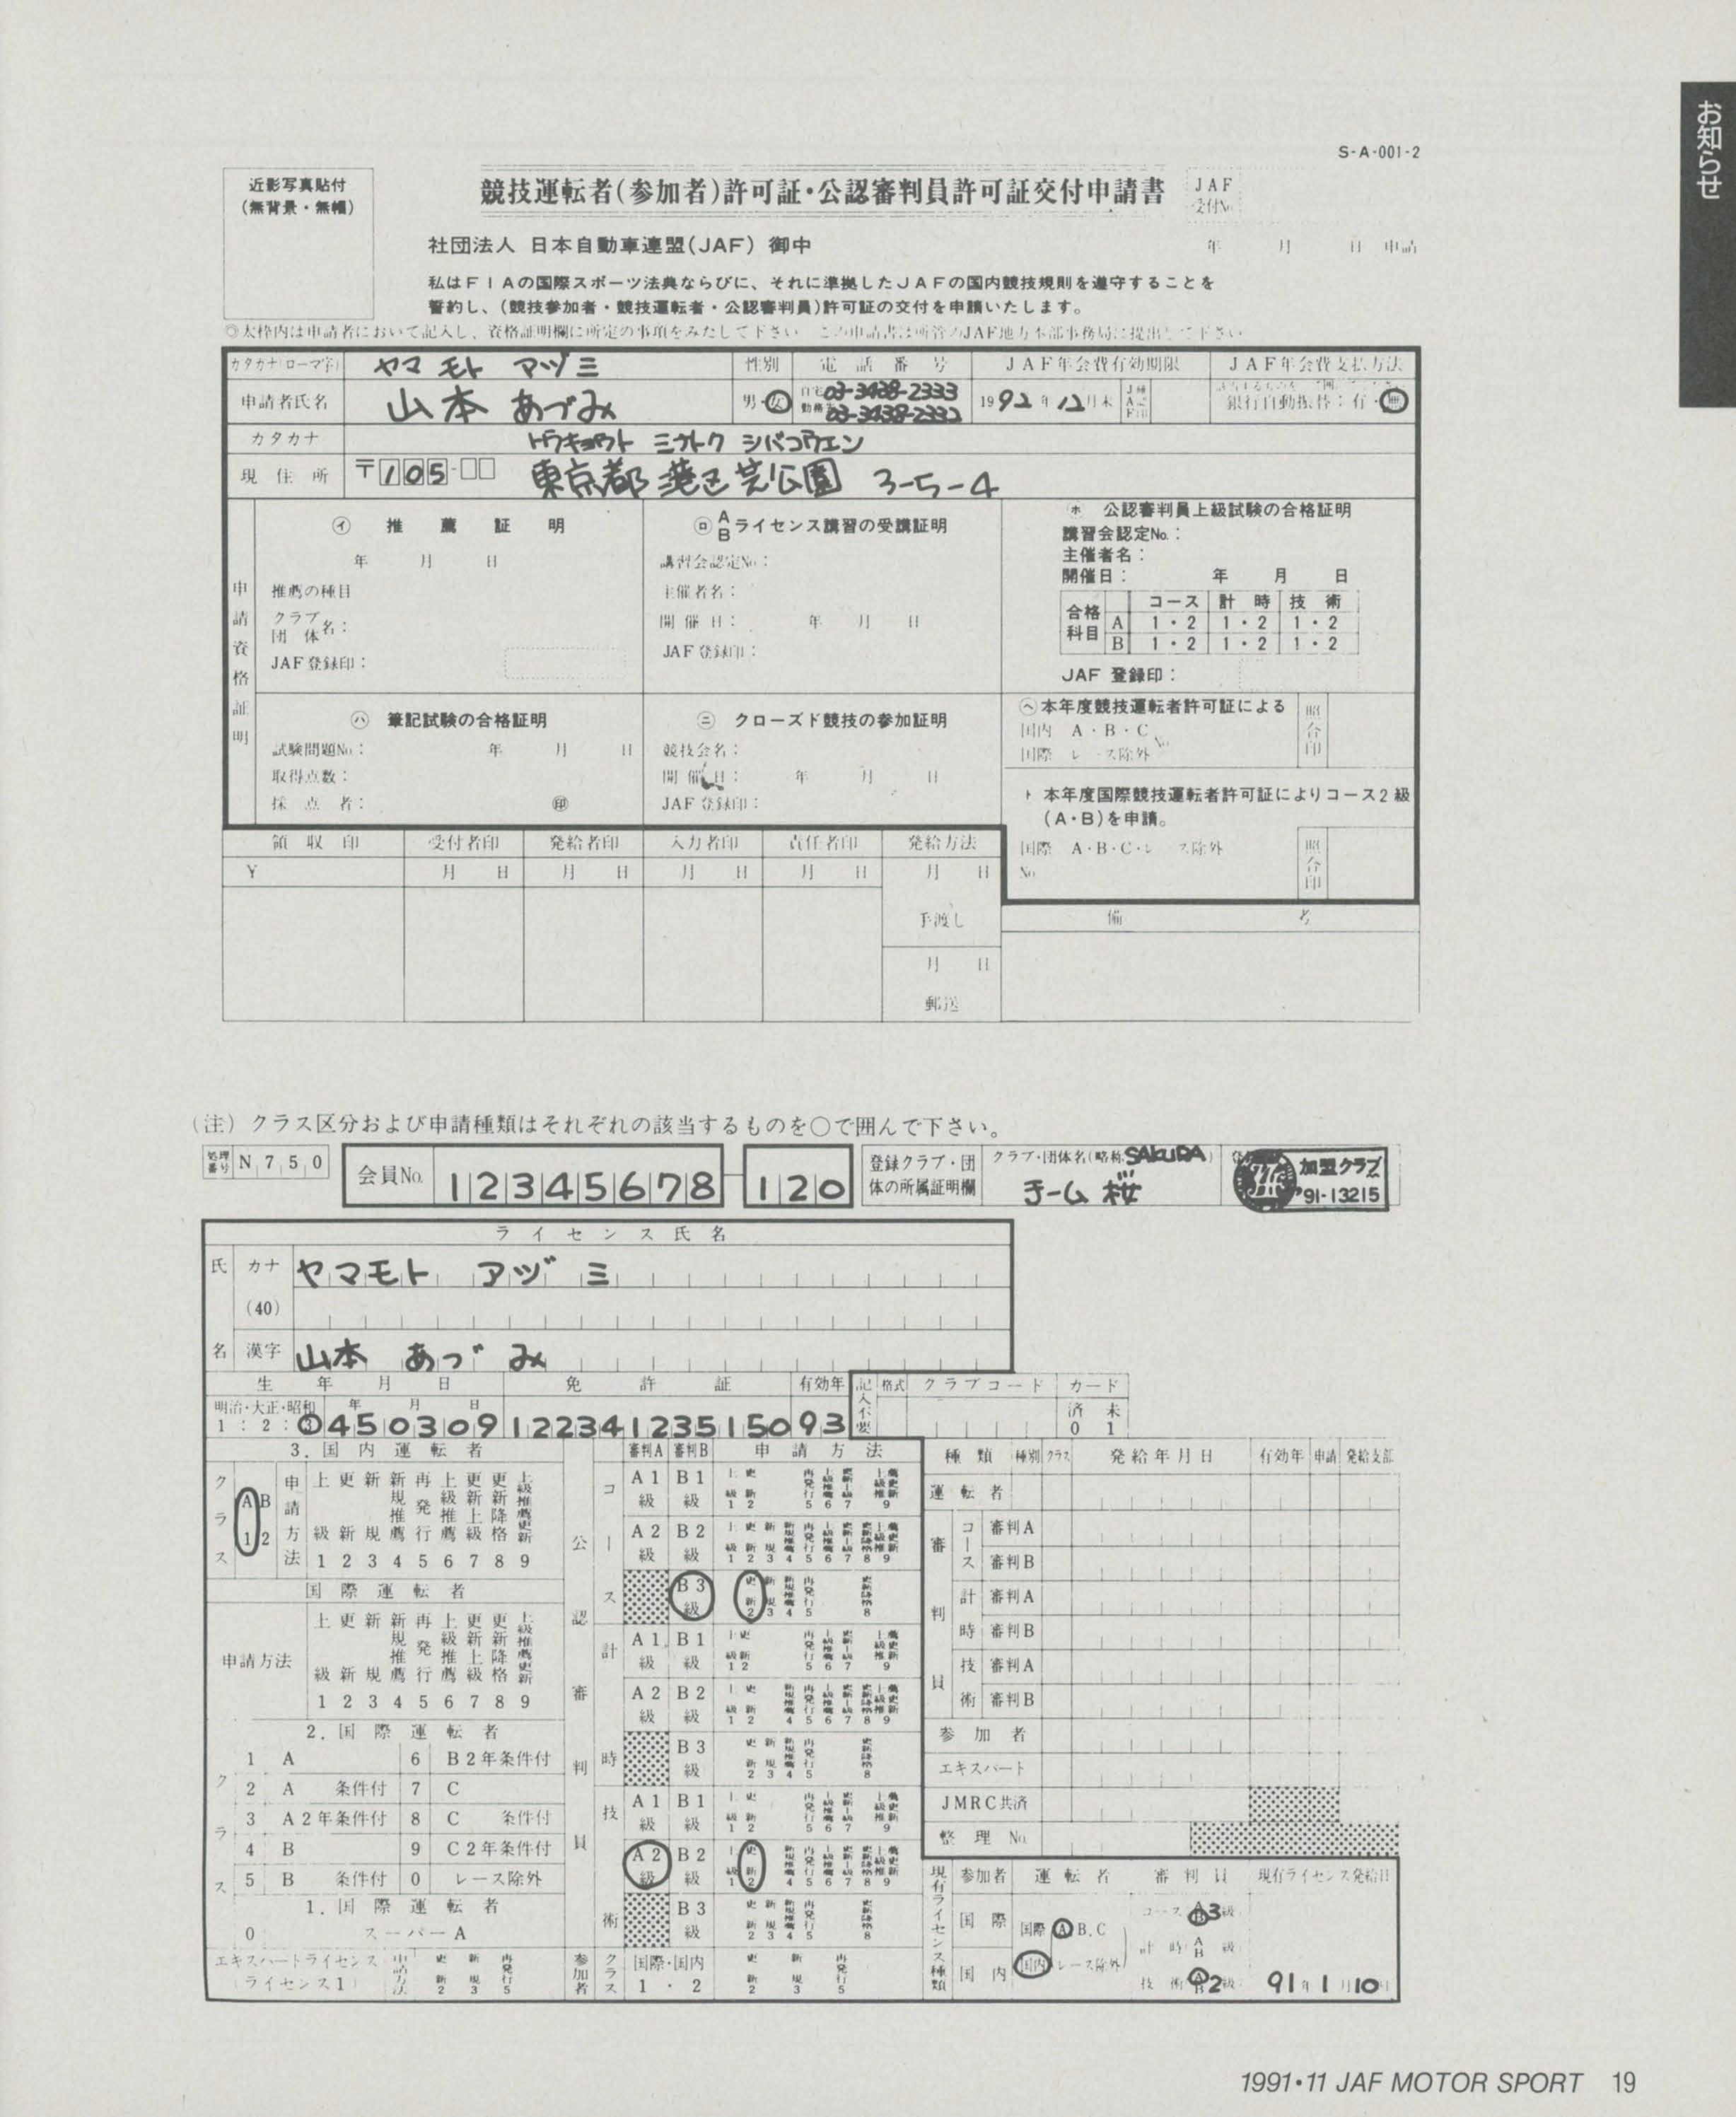 お知らせ
S-A-001-2
近影写真貼付
(無背景・無帽)
競技運転者(参加者)許可証・公認審判員許可証交付申請書
JAF
受付No.
社団法人 日本自動車連盟(JAF) 御中
年 月 日 申請
私はFIAの国際スポーツ法典ならびに、それに準拠したJAFの国内競技規則を遵守することを
誓約し、(競技参加者・競技運転者・公認審判員)許可証の交付を申請いたします。
◎太枠内は申請者において記入し、資格証明欄に所定の事項をみたして下さい この申請書は所管のJAF地方本部事務局に提出して下さい
カタカナ(ローマ字) ヤマモト アヅミ 性別 電話番号 JAF年会費有効期限 JAF年会費支払方法
申請者氏名 山本 あづみ 男・女 自宅 03-3438-2333 1992年12月末 銀行自動振替:有・無
勤務先 03-3438-2332
カタカナ トウキョウト ミナトク シバコウエン
現住所 〒105-□□ 東京都港区芝公園 3-5-4
申請資格証明
㋑ 推薦証明
年 月 日
推薦の種目
クラブ
団体名:
JAF登録印:
㋺ A B ライセンス講習の受講証明
講習会認定No.:
主催者名:
開催日: 年 月 日
JAF登録印:
㋭ 公認審判員上級試験の合格証明
講習会認定No.:
主催者名:
開催日: 年 月 日
合格科目 コース 計時 技術
A 1・2 1・2 1・2
B 1・2 1・2 1・2
JAF 登録印:
㋩ 筆記試験の合格証明
試験問題No.: 年 月 日
取得点数:
採点者: ㊞
㋥ クローズド競技の参加証明
競技会名:
開催日: 年 月 日
JAF登録印:
㋬本年度競技運転者許可証による
国内 A・B・C No.
国際 レース除外
照合印
ト 本年度国際競技運転者許可証によりコース2級
(A・B)を申請。
国際 A・B・C・レース除外
No.
照合印
領収印 受付者印 発給者印 入力者印 責任者印 発給方法
¥ 月 日 月 日 月 日 月 日 月 日
手渡し
月 日
郵送
備考
(注) クラス区分および申請種類はそれぞれの該当するものを○で囲んで下さい。
処理番号 N750
会員No. 12345678 - 120
登録クラブ・団体の所属証明欄
クラブ・団体名(略称 SAKURA)
チーム桜
加盟クラブ
91-13215
ライセンス氏名
氏名 カナ ヤマモト アヅミ
(40)
漢字 山本 あづみ
生年月日 免許証 有効年 記入不要 格式 クラブコード カード
明治・大正・昭和 年 月 日 済 未
1:2:3 450309 122341235150 93 0 1
3.国内運転者
クラス A1 B2
申請方法
上級 更新 新規 新規推薦 再発行 上級推薦 更新上級 更新降格 上級推薦更新
1 2 3 4 5 6 7 8 9
国際運転者
申請方法
上級 更新 新規 新規推薦 再発行 上級推薦 更新上級 更新降格 上級推薦更新
1 2 3 4 5 6 7 8 9
2.国際運転者
クラス
1 A 6 B2年条件付
2 A 条件付 7 C
3 A2年条件付 8 C 条件付
4 B 9 C2年条件付
5 B 条件付 0 レース除外
1.国際運転者
0 スーパーA
エキスパートライセンス
(ライセンス1)
申請方法 更新2 新規3 再発行5
公認審判員
審判A 審判B 申請方法
コース
A1級 B1級
A2級 B2級
B3級
計時
A1級 B1級
A2級 B2級
B3級
技術
A1級 B1級
A2級 B2級
B3級
参加者 クラス 国際・国内 1・2 更新2 新規3 再発行5
種類 種別 クラス 発給年月日 有効年 申請 発給支部
運転者
審判員
コース 審判A
審判B
計時 審判A
審判B
技術 審判A
審判B
参加者
エキスパート
JMRC共済
整理No.
現有ライセンス種類
参加者 運転者 審判員 現有ライセンス発給日
国際 国際 A B.C コース A B 3級
計時 A B 級
国内 国内 レース除外 技術 A B 2級 91年1月10日
1991・11 JAF MOTOR SPORT 19